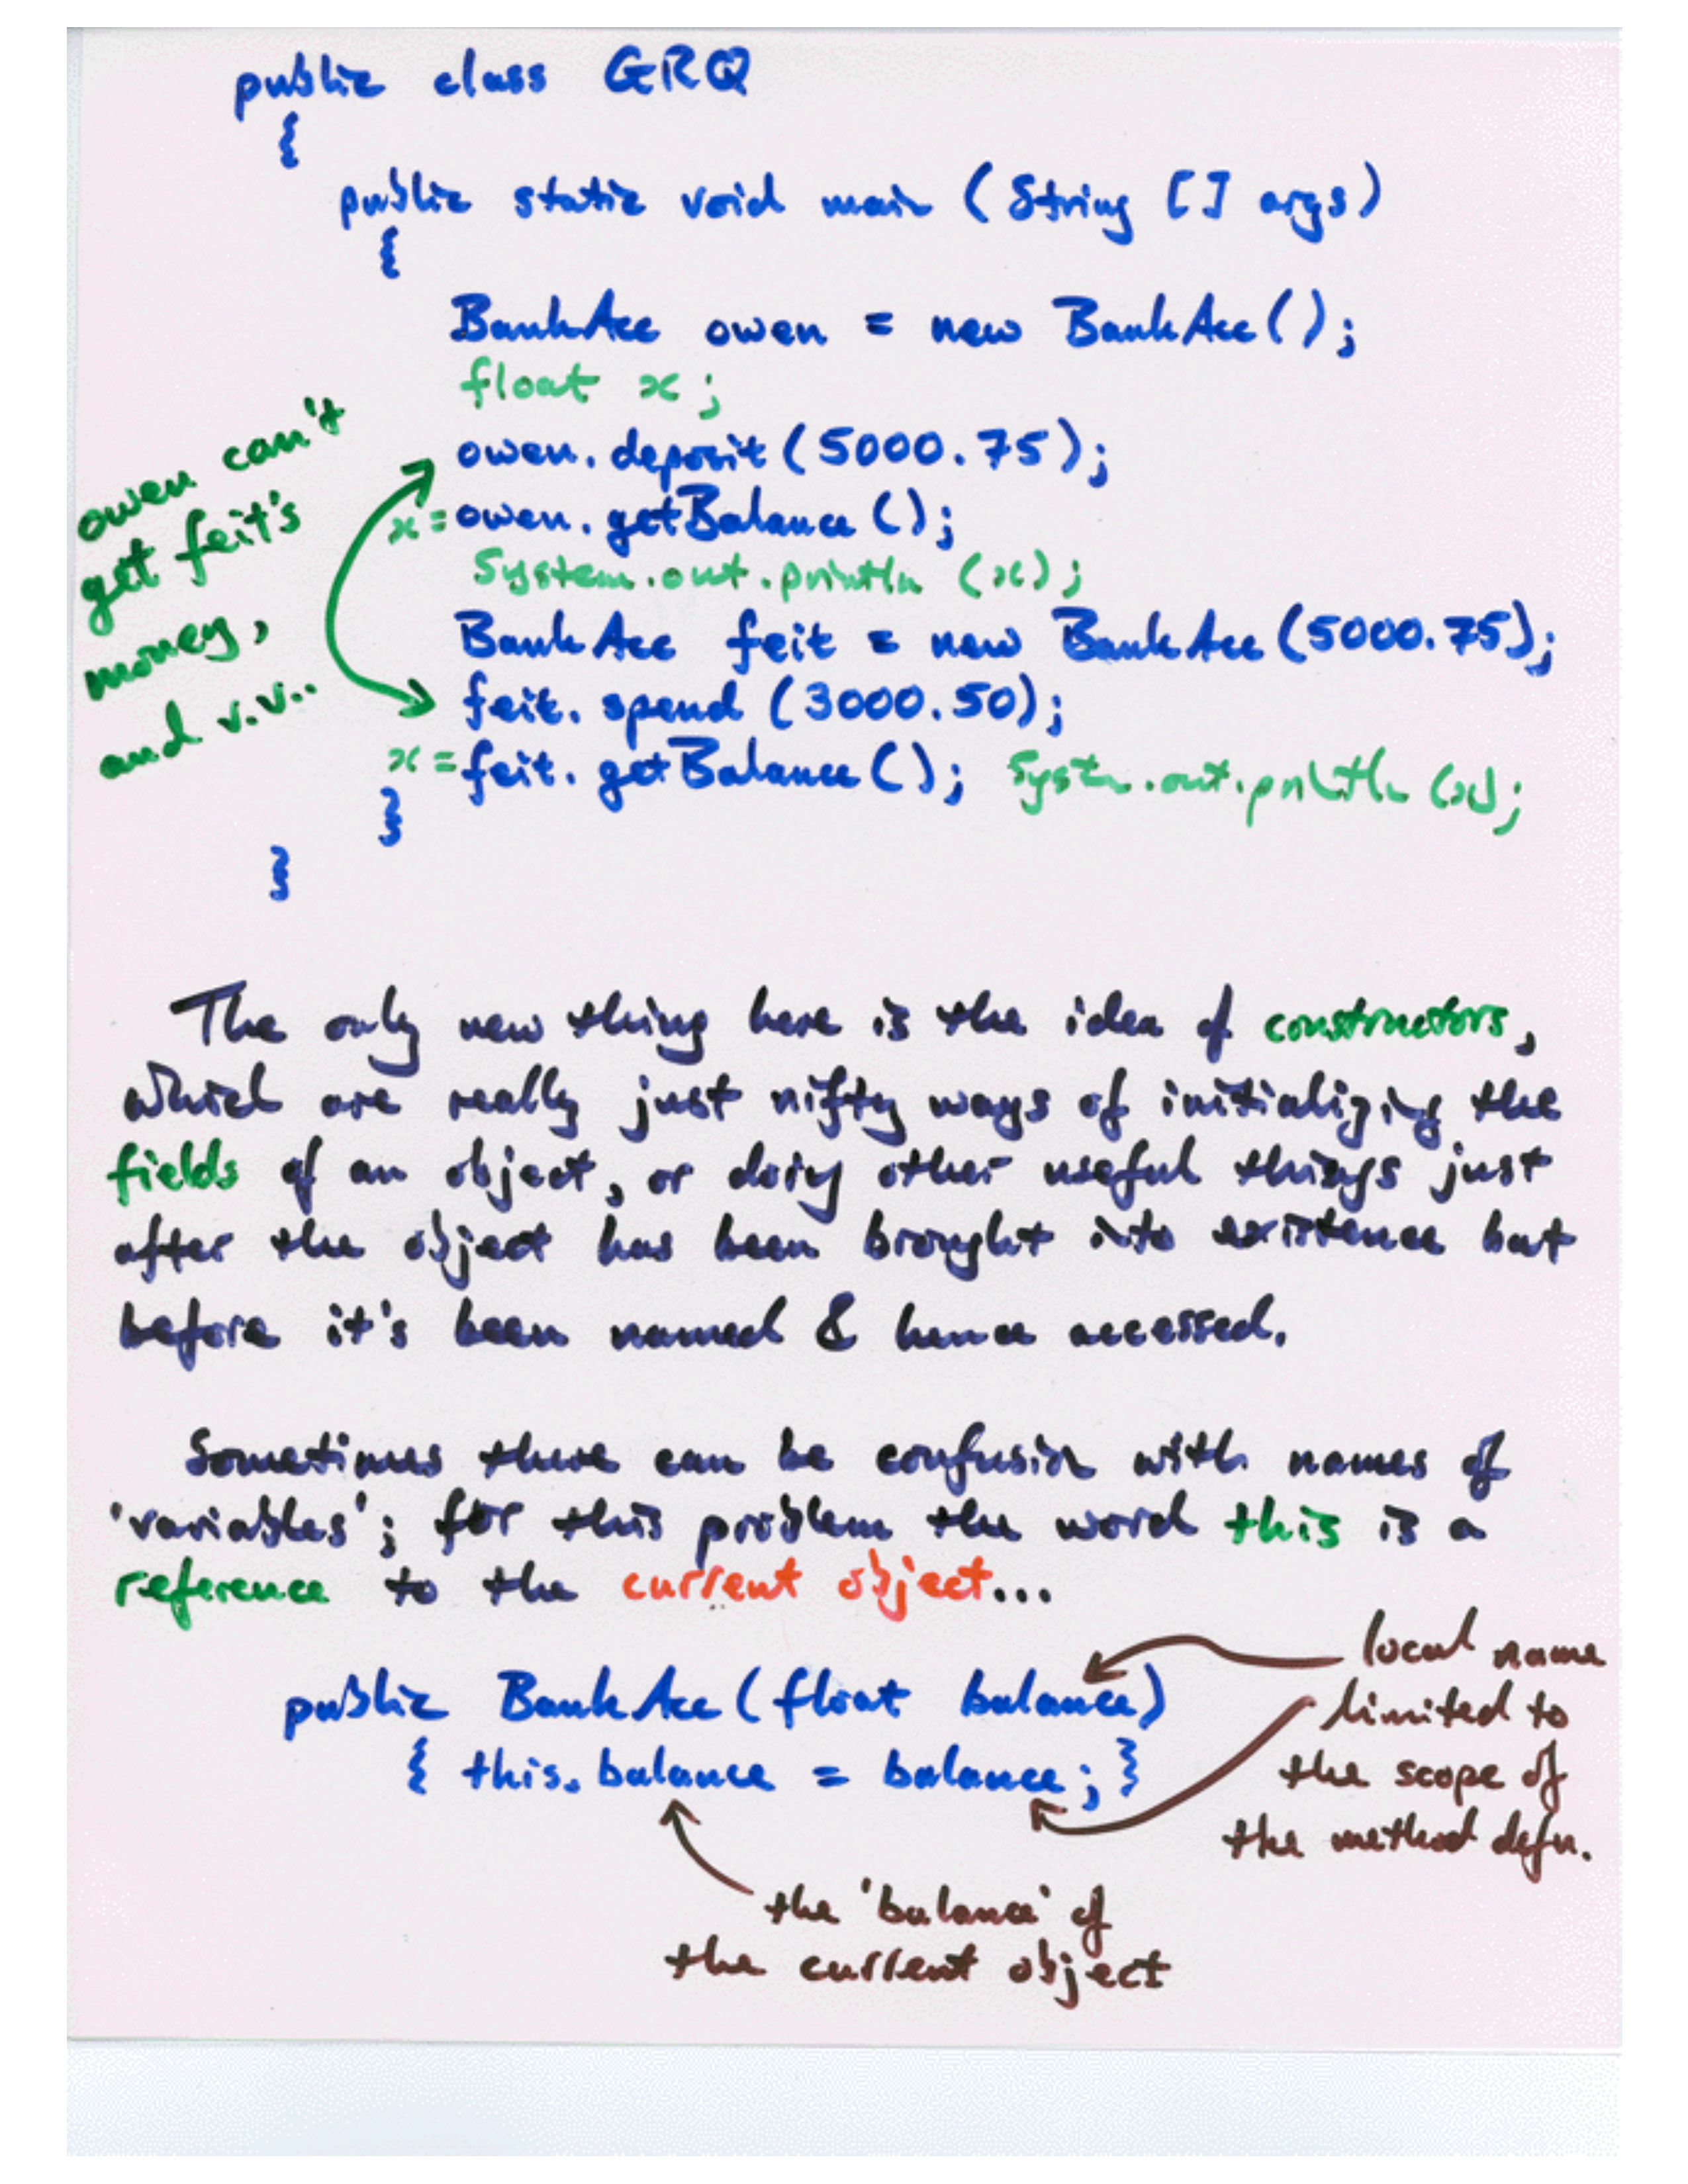 public class GRQ
{
public static void main (String [] args)
{
BankAcc owen = new BankAcc();
float x;
owen.deposit(5000.75);
x = owen.getBalance();
System.out.println (x);
BankAcc feit = new BankAcc(5000.75);
feit.spend (3000.50);
x = feit.getBalance(); System.out.println (x);
}
}
owen can't
get feit's
money,
and v.v..
The only new thing here is the idea of constructors,
which are really just nifty ways of initializing the
fields of an object, or doing other useful things just
after the object has been brought into existence but
before it's been named & hence accessed.
Sometimes there can be confusion with names of
'variables'; for this problem the word this is a
reference to the current object...
public BankAcc(float balance)
{ this.balance = balance; }
local name
limited to
the scope of
the method defn.
the 'balance' of
the current object